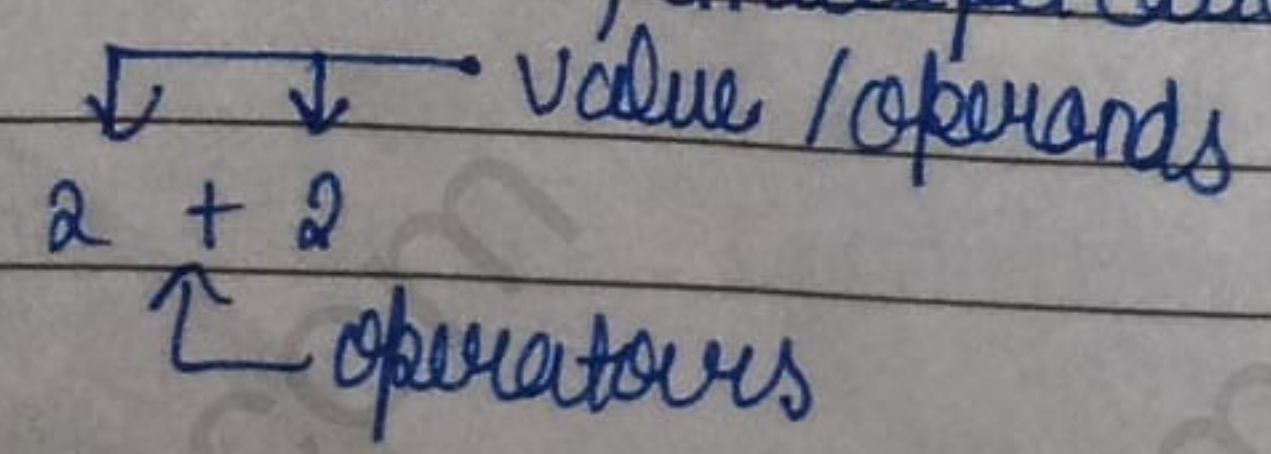 value / operands
2 + 2
operators
com